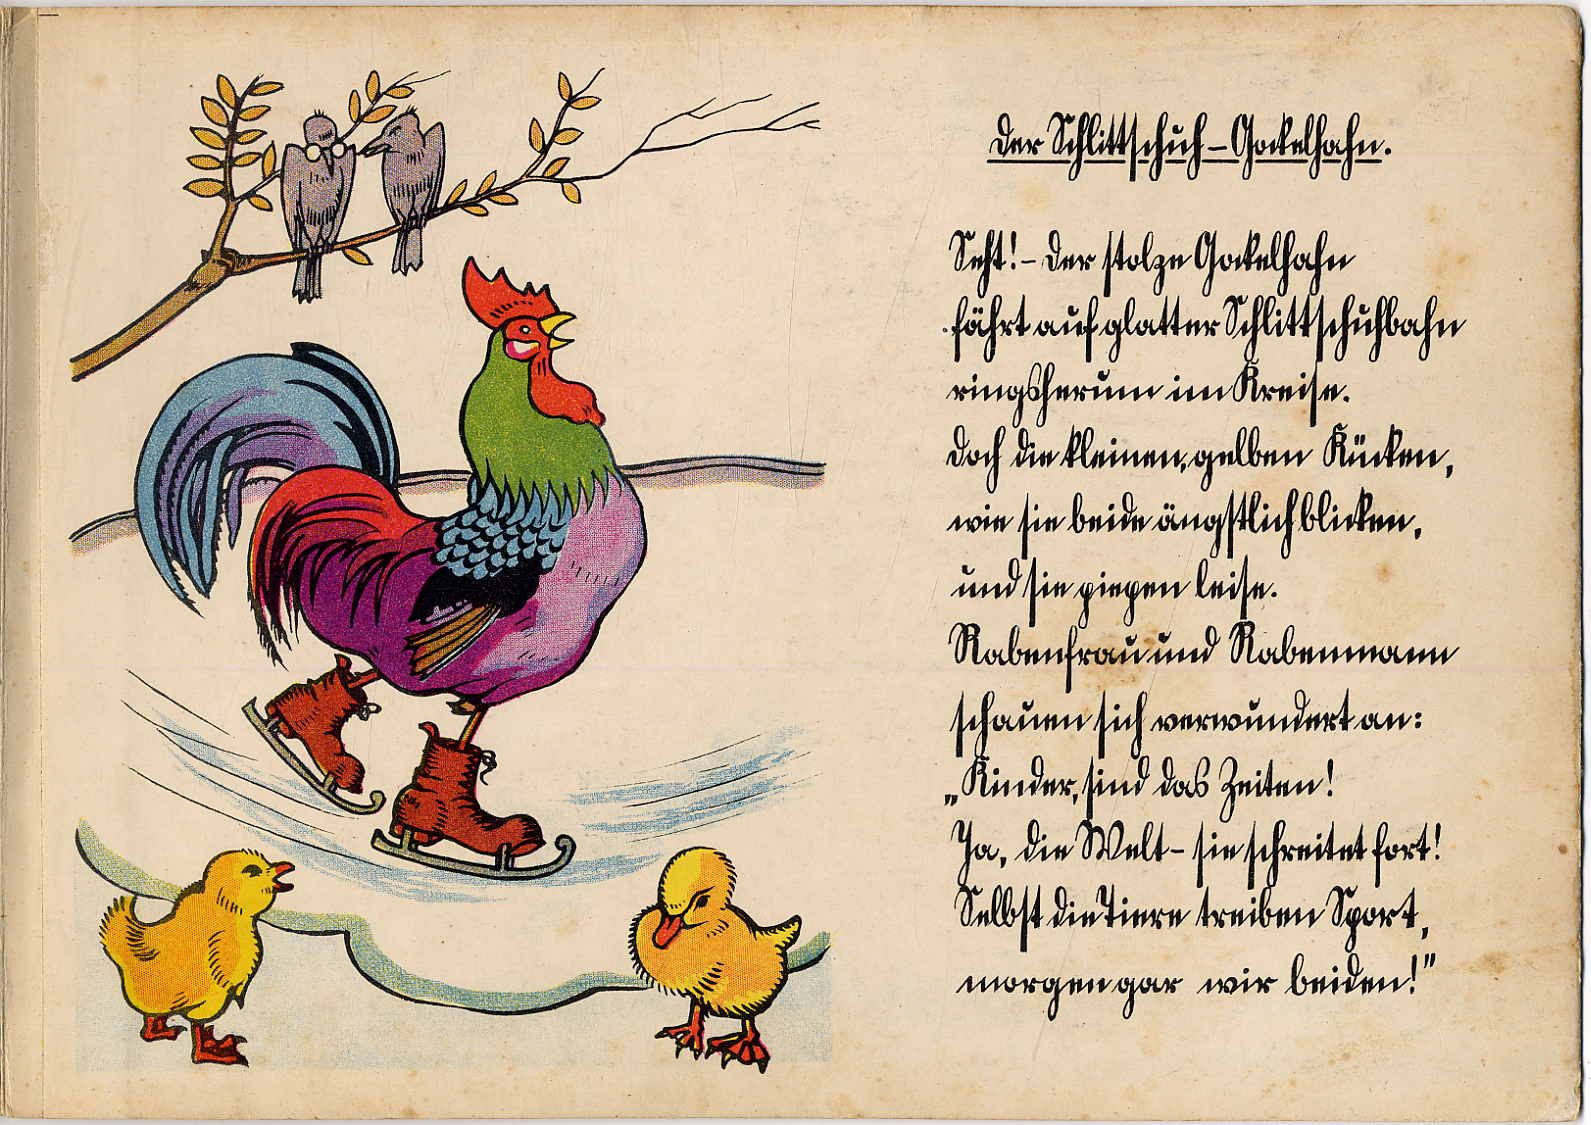 Der Schlittschuh-Gockelhahn.
Seht!- Der stolze Gockelhahn
fährt auf glatter Schlittschuhbahn
ringsherum im Kreise.
Doch die kleinen, gelben Kücken,
wie sie beide ängstlich blicken,
und sie piepen leise.
Rabenfrau und Rabenmann
schauen sich verwundert an:
„Kinder, sind das Zeiten!
Ja, die Welt - sie schreitet fort!
Selbst die Tiere treiben Sport,
morgen gar wir beiden!"